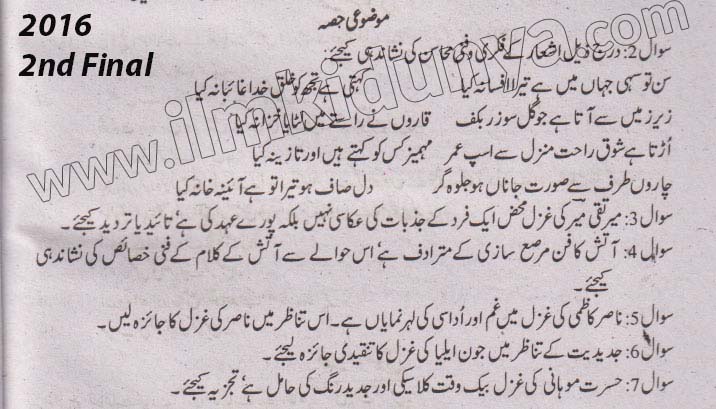 2016
2nd Final
موضوعی حصہ
سوال 2: درج ذیل اشعار کے فکری و فنی محاسن کی نشاندہی کیجئے
سن تو سہی جہاں میں ہے تیرا افسانہ کیا    کہتی ہے تجھ کو خلق خدا غائبانہ کیا
زیرز میں سے آتا ہے جو گل سوزر بکف    قاروں نے راستے میں لٹایا خزانہ کیا
اُڑتا ہے شوق راحت منزل سے اسپ عمر    مہمیز کس کو کہتے ہیں اور تازینہ کیا
چاروں طرف سے صورت جاناں ہو جلوہ گر    دل صاف ہو تیرا تو ہے آئینہ خانہ کیا
سوال 3: میر تقی میر کی غزل محض ایک فرد کے جذبات کی عکاسی نہیں بلکہ پورے عہد کی ہے‘ تائید یا تردید کیجئے۔
سوال 4: آتش کا فن مرصع سازی کے مترادف ہے‘ اس حوالے سے آتش کے کلام کے فنی خصائص کی نشاندہی
کیجئے۔
سوال 5: ناصر کاظمی کی غزل میں غم اور اُداسی کی لہر نمایاں ہے۔ اس تناظر میں ناصر کی غزل کا جائزہ لیں۔
سوال 6: جدیدیت کے تناظر میں جون ایلیا کی غزل کا تنقیدی جائزہ لیجئے۔
سوال 7: حسرت موہانی کی غزل بیک وقت کلاسیکی اور جدید رنگ کی حامل ہے‘ تجزیہ کیجئے۔
www.ilmkidunya.com